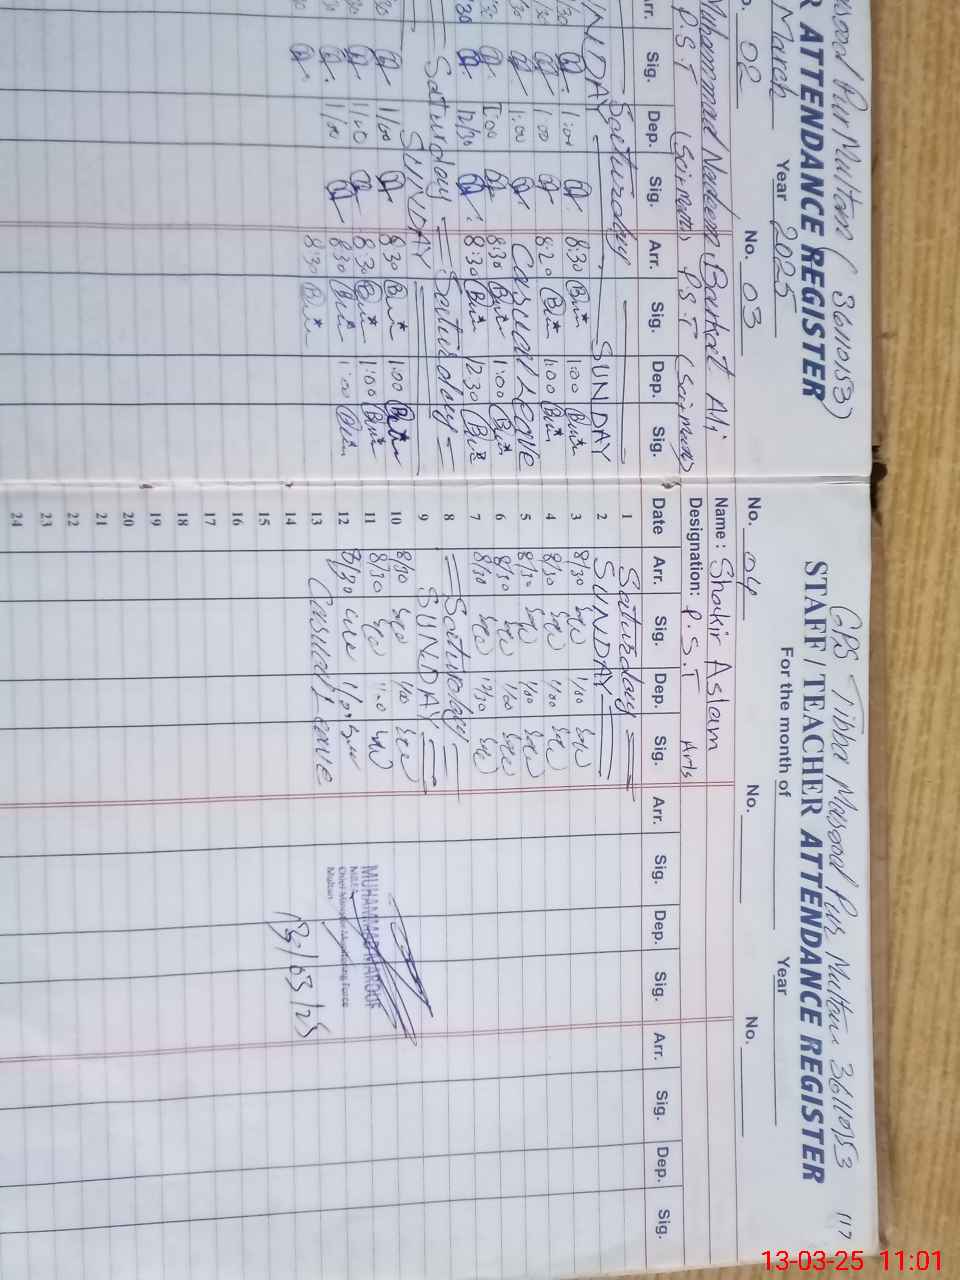 GPS Tibba Masood Pur Multan 36110153 117
STAFF / TEACHER ATTENDANCE REGISTER
For the month of Year
No. 04 No. No.
Name: Shakir Aslam
Designation: P.S.T Arts
Date Arr. Sig. Dep. Sig. Arr. Sig. Dep. Sig. Arr. Sig. Dep. Sig.
1 Saturday
2 SUNDAY
3 8/30 1/00
4 8/30 1/00
5 8/30 1/00
6 8/30 1/00
7 8/30 12/30
8 Saturday
9 SUNDAY
10 8/30 1/00
11 8/30 1:00
12 8/30 1/00
13 Casual Leave
14
15
16
17
18
19
20
21
22
23
24
MUHAMMAD MAROOF
Chief Minister Monitoring Force
Multan
Masood Pur Multan (36110153)
R ATTENDANCE REGISTER
March Year 2025
No. 02 No. 03
Muhammad Nadeem Barkat Ali
P.S.T (Sci-Math) P.S.T (Sci-Math)
Arr. Sig. Dep. Sig. Arr. Sig. Dep. Sig.
Saturday
SUNDAY SUNDAY
1:00 8:30 1:00
1:00 8:20 1:00
1:00 Casual Leave
1:00 8:30 1:00
12/30 8:30 12:30
Saturday Saturday
SUNDAY
1/00 8:30 1:00
1/00 8:30 1:00
1/00 8:30 1:00
8:30
13-03-25 11:01